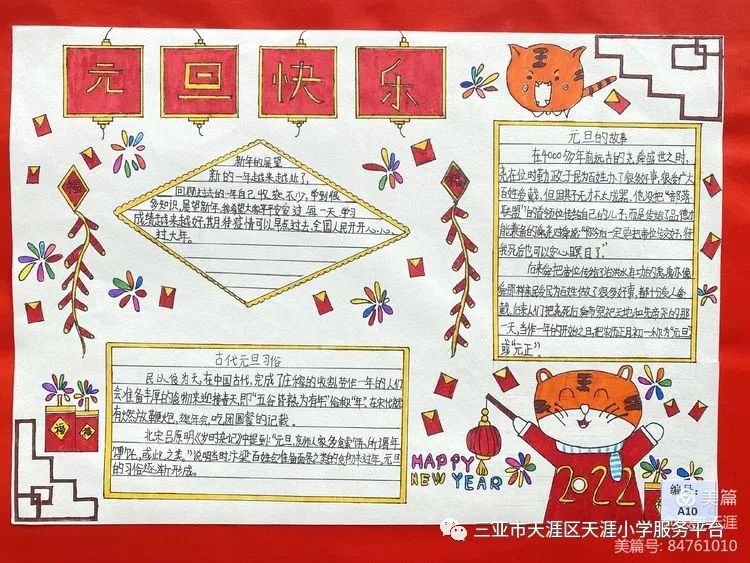 元旦快乐
新年的展望
新的一年越来越近了,
回顾过去的一年自己收获不少,学到很
多知识,展望新年,我希望大家平平安安过每一天,学习
成绩越来越好,其月待疫情可以早点过去,全国人民开开心心
过大年。
元旦的故事
在4000多年前远古的尧舜盛世之时,
尧在位时勤政于民为百姓办了很多好事,很受广大
百姓爱戴,但因其子无才不太成器,他没把“部落
联盟”的首领位传给自己的儿子,而是传给了品德才
能兼备的舜。尧对舜说“你今后一定要把帝位传交好,待
我死后也可以安心瞑目了。”
后来舜把帝位传给了治洪水有功的禹,禹亦像
舜那样亲民为百姓做了很多好事,都十分受人爱
戴,
一天,当作一年的开始之日,把农历正月初一称为“元旦”
或“元正”。
古代元旦习俗
民以食为天,在中国古代,完成了庄稼的收割劳作一年的人们
会准备丰厚的食物来迎接春天,即“五谷皆熟为有年”俗取“年”。在宋代就
有燃放鞭炮,吃团圆餐的记载。
北宋吕原明《岁时杂记》中提到“元旦,京师人家多食索饼,所谓年
馎饦,或此之类。”说明当时汴梁百姓会准备面条之类的食物来过年,元旦
的习俗逐渐形成。
HAPPY
NEW YEAR
2022
福
福
福
福
编号:
A10
美篇
三亚市天涯区天涯小学服务平台
美篇号: 84761010